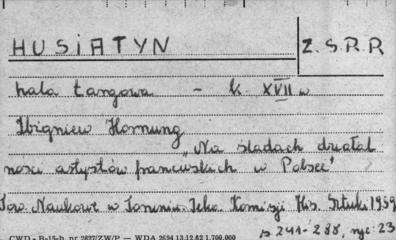 HUSIATYN
Z.S.R.R
hala targowa - k. XVII w
Zbigniew Hornung
"Na śladach działal
ności artystów francuskich w Polsce"
Tow. Naukowe w Toruniu Teka Komisji His. Sztuki 1959
s 241-288, ryc. 23
CWD - B-15-b nr 2827/ZW/P — WDA 2694 13.12.62 1.700.000